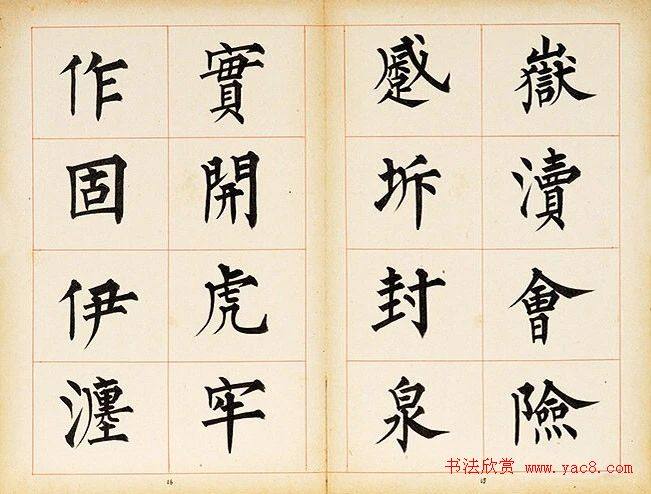 嶽瀆會險
蹙坼封泉
實開虎牢
作固伊瀍
书法欣赏 www.yac8.com